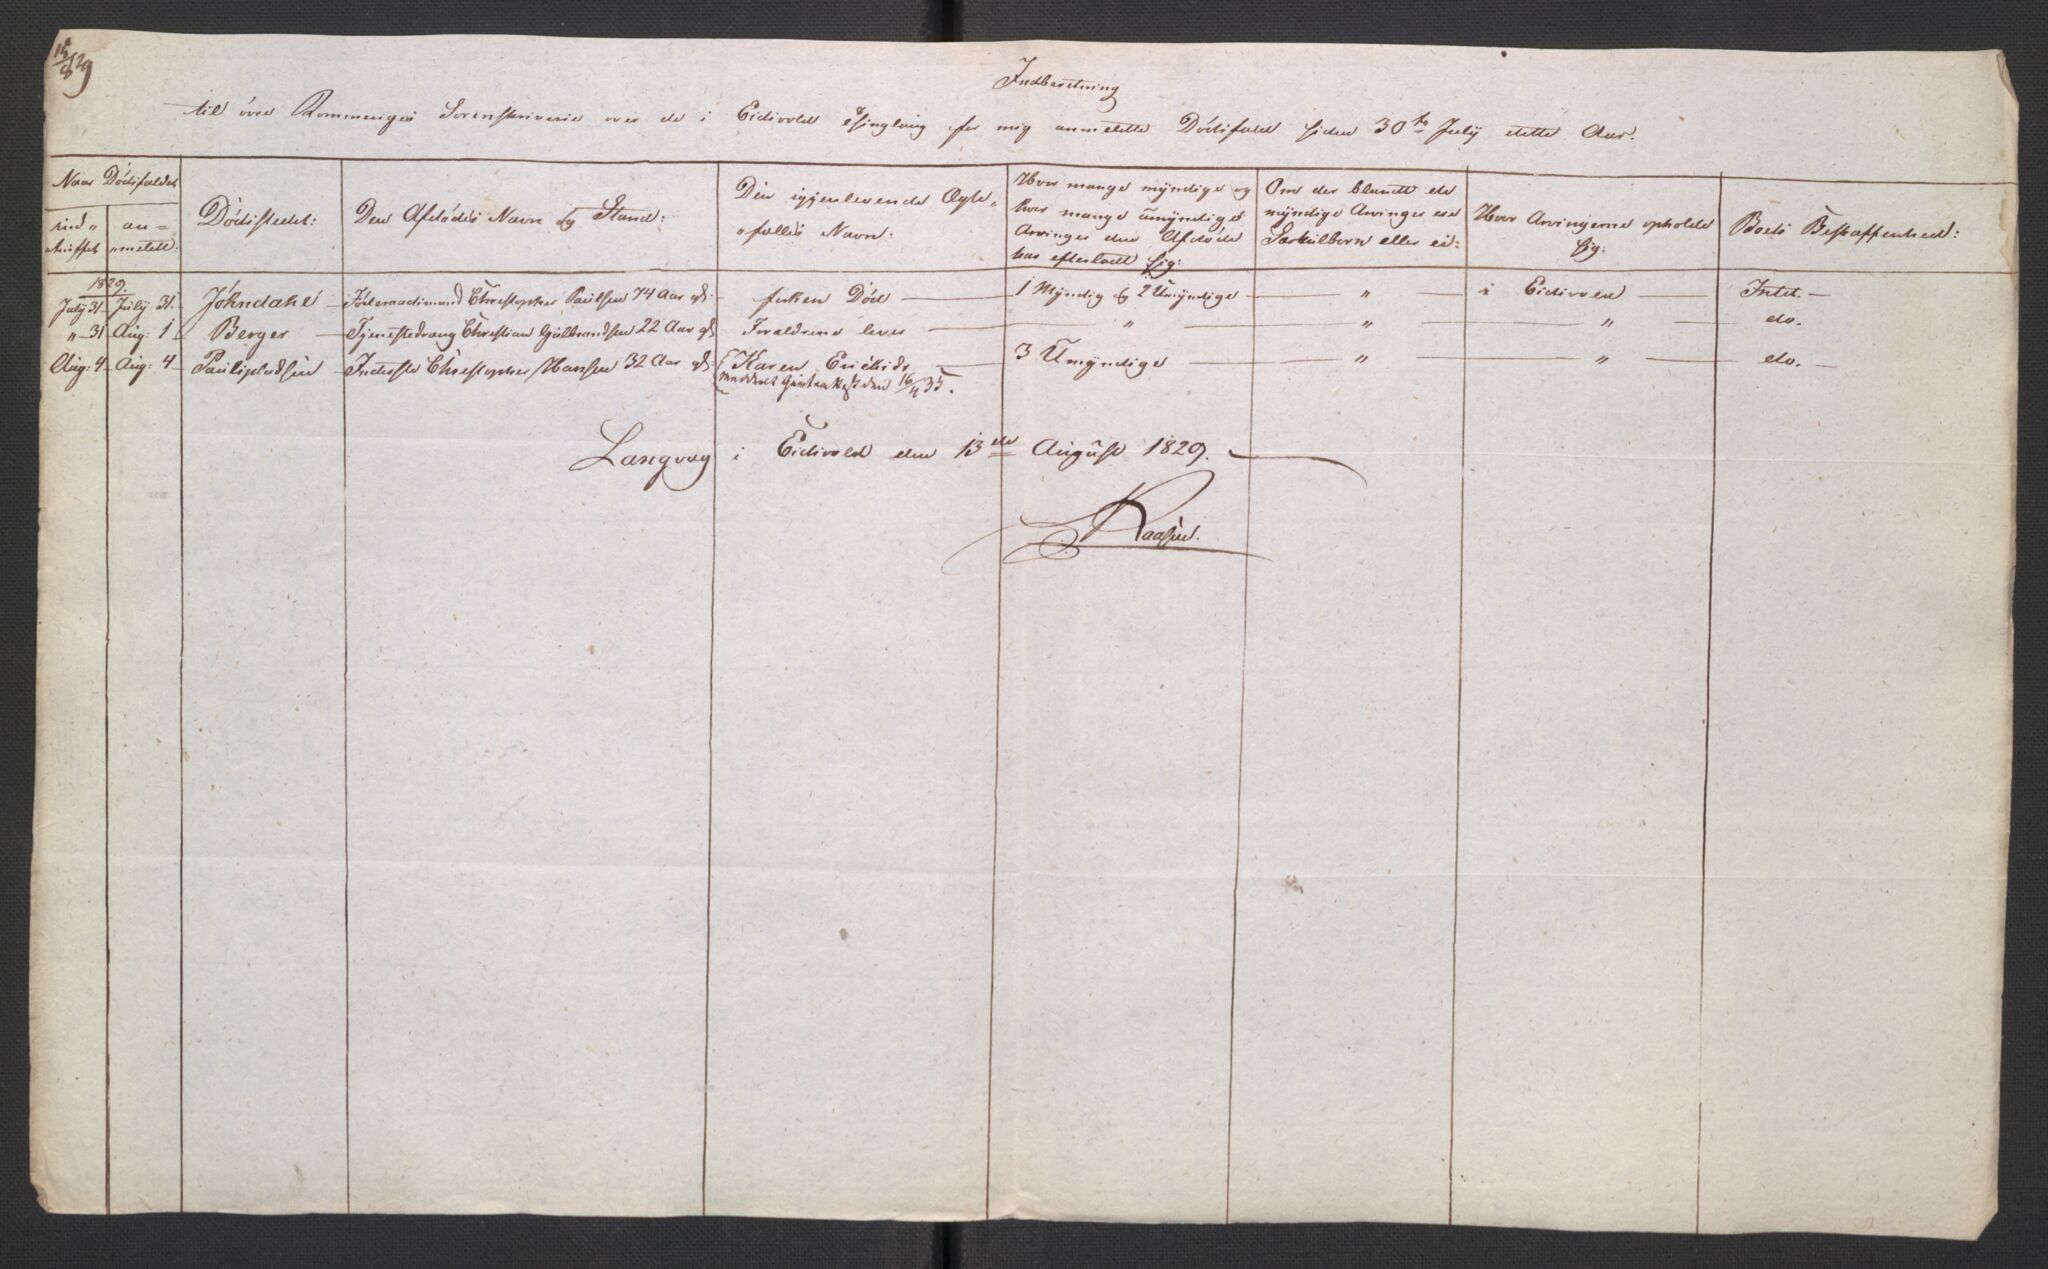 15/8 29
Indberetning
til övre Rommeriges Sorenskriverie over de i Eidsvold Thinglaug for mig anmeldte Dödsfald siden 30te July dette Aar.
Naar Dödsfaldet
ind-
an-
truffet
meldt:
Dödsstedet:
Den Afdödes Navn og Stand:
Den igjenlevende Ægte-
fælles Navn:
Hvor mange myndige og
hvor mange umyndige
Arvinger den Afdöde
har efterladt sig:
Om der blandt de
myndige Arvinger ere
Særkulbörn eller ei:
Hvor Arvingerne opholde
sig:
Boets Beskaffenhed:
1829.
July 31. July 31. Föderaadsmand Christopher Paulsen 74 Aar gl: Död 1 Myndig og 2 Umyndige " i Eidsvold Intet.
" 31 Aug: 1 Berger Tjenestedreng Christian Gulbrandsen 22 Aar gl Foraldrene lever " " " do.
Aug: 4 Aug: 4 Inderste Christopher Hansen 32 Aar gl: Karen 3 Umyndige " " do.
meddeelt den 16/11 35.
Langvag i Eidsvold den 13de August 1829.
Raasen.